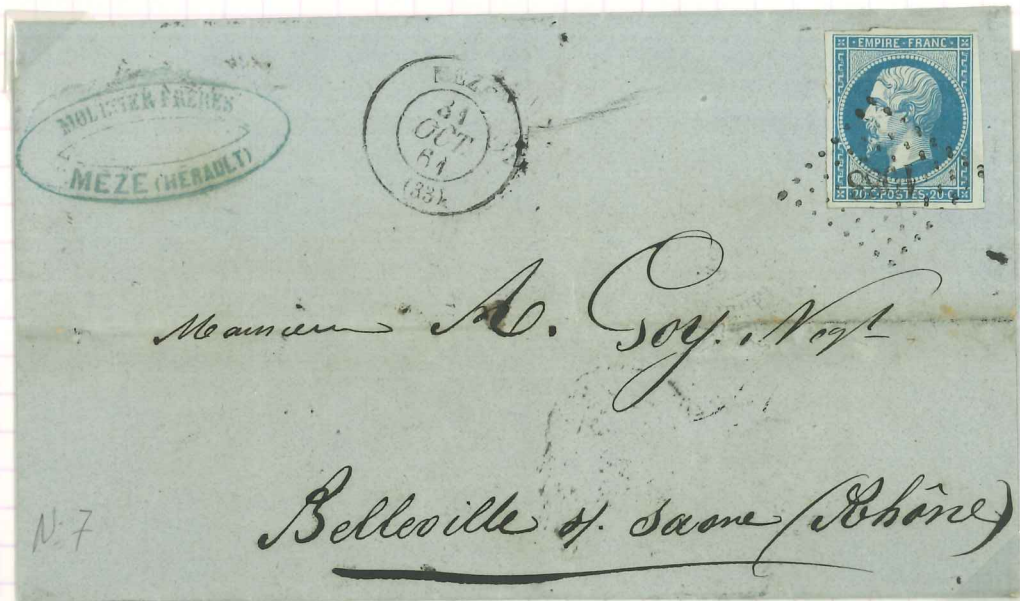 MOLINIER FRÈRES
MÈZE (HÉRAULT)
MÈZE
31
OCT
61
(33)
EMPIRE-FRANC
20 C-POSTES-20 C
Monsieur A. Goy. Negt
Belleville s/. Saone (Rhône)
N. 7